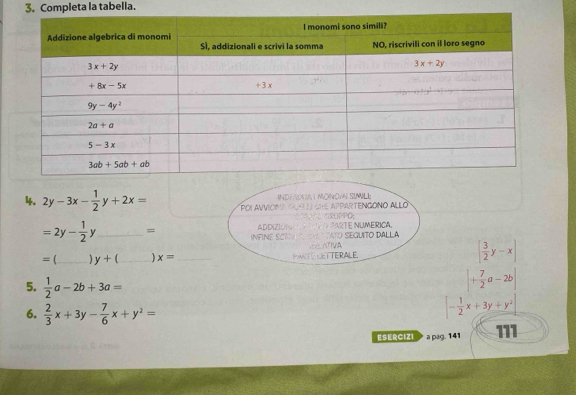 3. Completa la tabella.
Addizione algebrica di monomi
I monomi sono simili?
SÌ, addizionali e scrivi la somma
NO, riscrivili con il loro segno
3x + 2y
3x + 2y
+ 8x − 5x
+3x
9y − 4y²
2a + a
5 − 3x
3ab + 5ab + ab
4. 2y − 3x − 1/2 y + 2x =
= 2y − 1/2 y ______ =
= (______) y + (______) x = ______
SIMILI;
POI APPARTENGONO ALLO
GRUPPO;
PARTE NUMERICA.
INFINE SEGUITO DALLA
PARTE LETTERALE.
[3/2 y − x]
5. 1/2 a − 2b + 3a =
[+7/2 a − 2b]
6. 2/3 x + 3y − 7/6 x + y² =
[−1/2 x + 3y + y²]
ESERCIZI a pag. 141
111